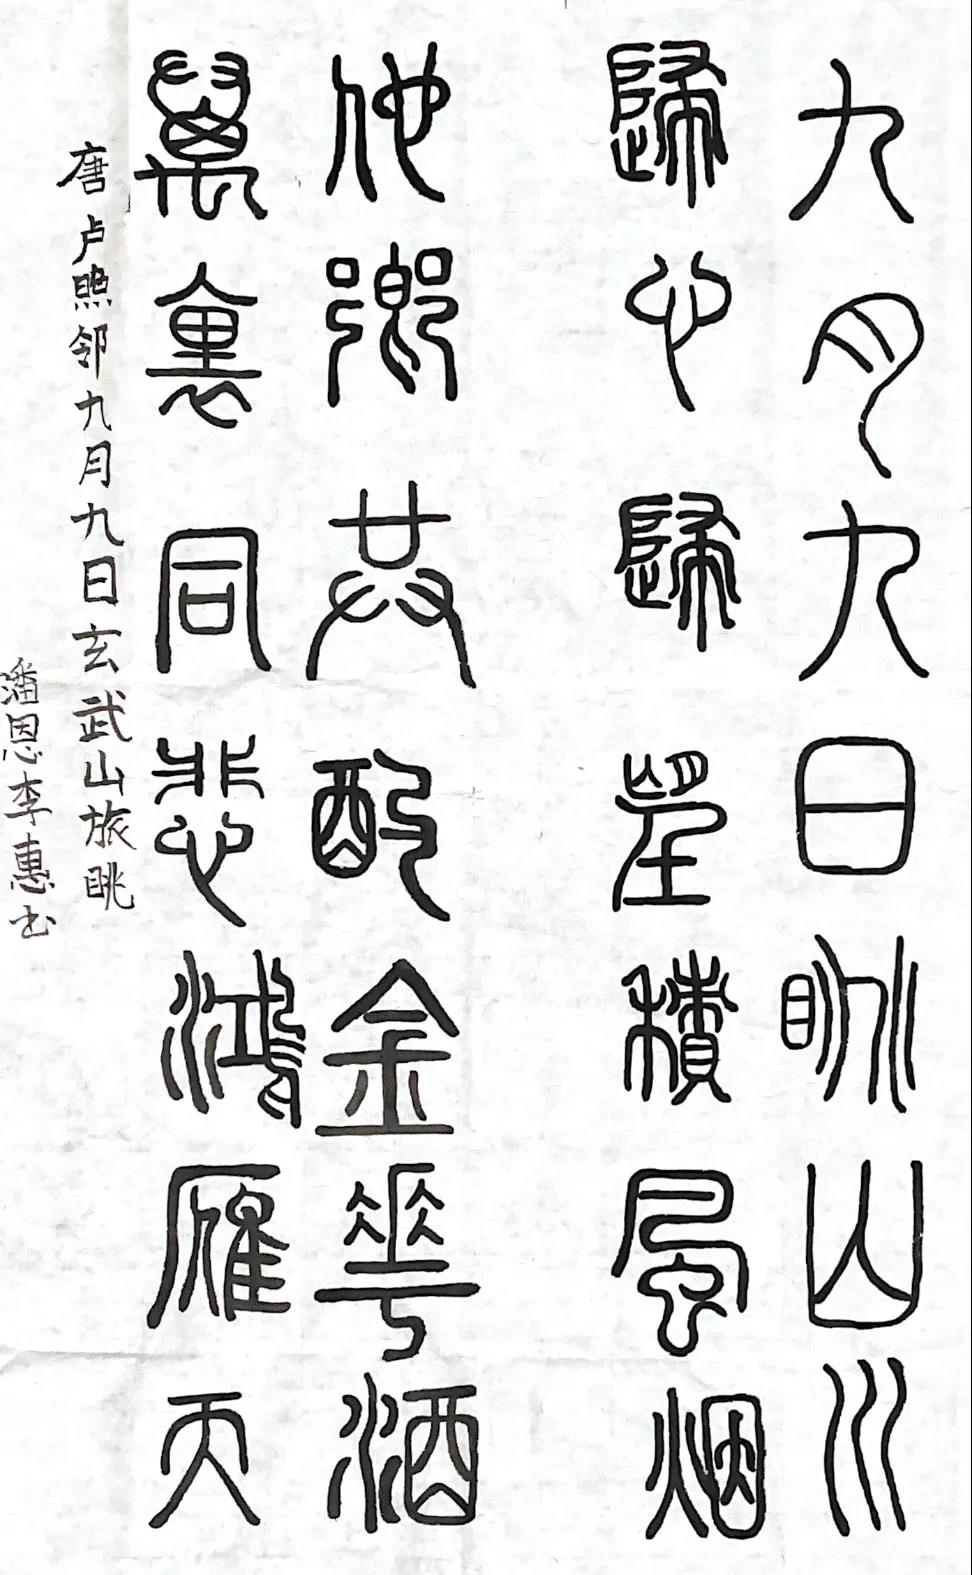 九月九日眺山川
歸心歸望積風烟
他鄉共酌金華酒
萬裏同悲鴻雁天
唐卢照邻九月九日玄武山旅眺
潘恩李惠书